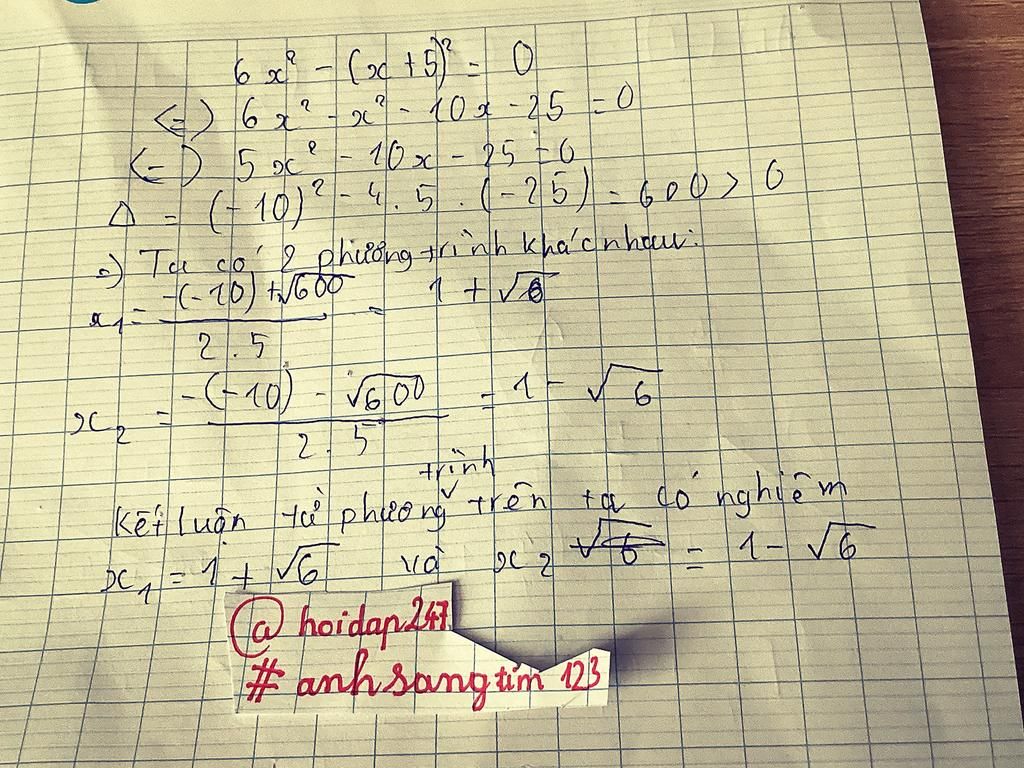 6x² - (x+5)² = 0
(=) 6x² - x² - 10x - 25 = 0
(=) 5x² - 10x - 25 = 0
Δ = (-10)² - 4.5.(-25) = 600 > 0
=) Ta có 2 phương trình khác nhau:
x₁ = (-(-10) + √600) / (2.5) = 1 + √6
x₂ = (-(-10) - √600) / (2.5) = 1 - √6
Kết luận từ phương trình trên ta có nghiệm
x₁ = 1 + √6 và x₂ = 1 - √6
@hoidap247
#anhsangtim123